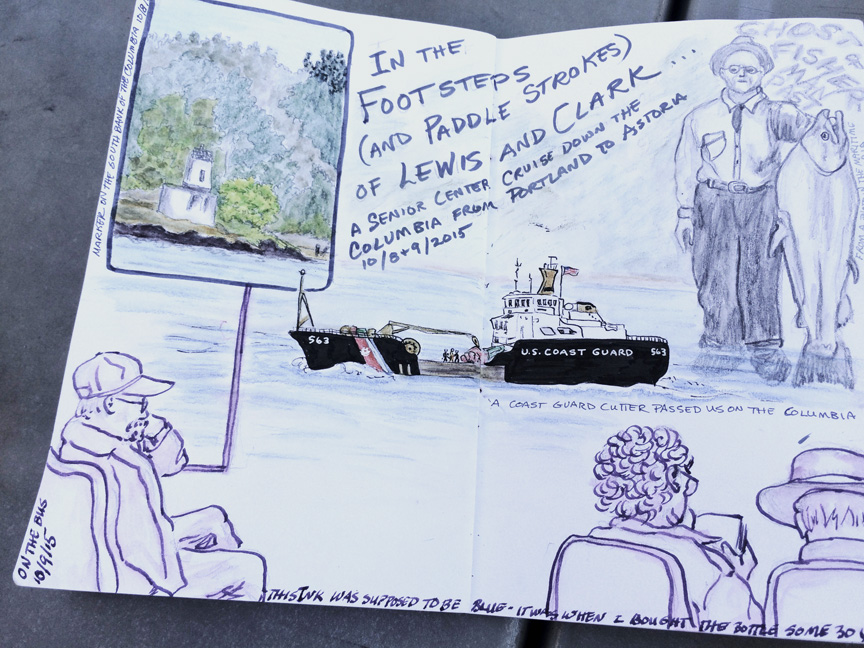 MARKER ON THE SOUTH BANK OF THE COLUMBIA 10/8/
IN THE
FOOTSTEPS
(AND PADDLE STROKES)
OF LEWIS AND CLARK...
A SENIOR CENTER CRUISE DOWN THE
COLUMBIA FROM PORTLAND TO ASTORIA
10/8+9/2015
GHOST
FISHER
MAN
563
U.S. COAST GUARD
563
A COAST GUARD CUTTER PASSED US ON THE COLUMBIA
ON THE BUS
10/9/15
THIS INK WAS SUPPOSED TO BE BLUE - IT WAS WHEN I BOUGHT THE BOTTLE SOME 30